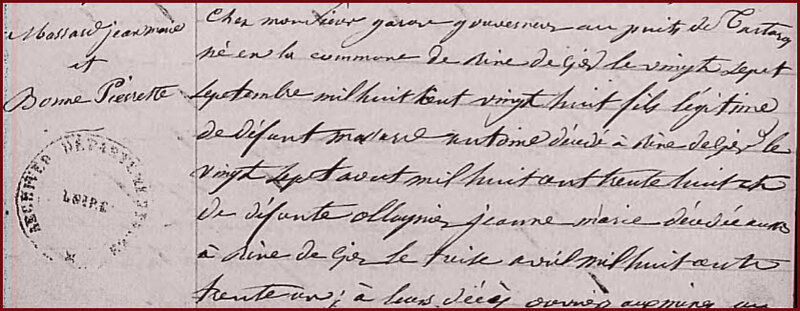 Massard jean marie
et
Bonne Pierrette
ARCHIVES DÉPARTEMENTALES
LOIRE
chez monsieur gouverneur au puits de
né en la commune de Rive de Gier le vingt sept
septembre mil huit cent vingt huit fils légitime
de défunt massard antoine décédé à Rive de Gier le
vingt sept aout mil huit cent trente huit et
de défunte ollagnier jeanne marie décédée aussi
à Rive de Gier le treize avril mil huit cent
trente un ; à leurs décès ouvrier aux mines au